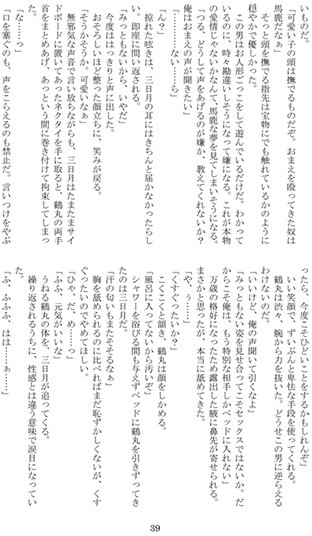 いものだ。
「可愛い子の頭は撫でるものだぞ、おまえを殴ってきた奴は
馬鹿だなぁ」
そっと頭を撫でる指先は宝物にでも触れているかのように
穏やかで優しかった。
この男はお人形ごっこをして遊んでいるだけだ。わかって
いるのに、時々勘違いしそうになって嫌になる。これが本物
の愛情じゃないかなんて、馬鹿な夢を見てしまいそうになる。
「つる、どうして声をあげるのが嫌か、教えてくれないか？
俺はおまえの声が聞きたい」
「……ない……ら」
「ん？」
掠れた呟きは、三日月の耳にはきちんと届かなかったらし
い、即座に問い返される。
「みっともないから、いやだ」
今度ははっきりと声に出した。
おそろしいほど整った顔立ちに、笑みが戻る。
「そうかそうか、可愛いなぁ」
無邪気な声音で言い放ちながらも、三日月はたまたまサイ
ドボードに置いてあったネクタイを手に取ると、鶴丸の両手
首をまとめあげ、あっという間に巻き付けて拘束してしまっ
た。
「な……っ」
「口を塞ぐのも、声をこらえるのも禁止だ。言いつけをやぶ
ったら、今度こそひどいことをするかもしれんぞ」
いい笑顔で、ずいぶんと卑怯な手段を使ってくれる。
鶴丸は渋々、腕から力を抜いた。どうせこの男に逆らえる
わけないのだ。
「いいけど、俺の声聞いて引くなよ」
「みっともない姿を見せ合ってこそセックスではないか。だ
からこそ俺は、もう特別な相手しかベッドに入れない」
万歳の格好になったため露出した腋に鼻先が寄せられる。
まさかと思ったが、本当に舐めてきた。
「や、ぅ……」
「くすぐったいか？」
こくこくと頷き、鶴丸は顔をしかめる。
「風呂に入ってないから汚いぞ」
シャワーを浴びる間も与えずベッドに鶴丸を引きずってき
たのは三日月だ。
「汗の匂いもまたそそるなぁ」
胸を舐められるのに比べればまだ恥ずかしくないが、くす
ぐったいのでやめてほしい。
「ひゃ、だ、め……っ」
「ふふ、元気がいいな」
うねる鶴丸の体を、三日月が追ってくる。
繰り返されるうちに、性感とは違う意味で涙目になってい
た。
「ふ、ふふふ、はは……ぁ……」
39